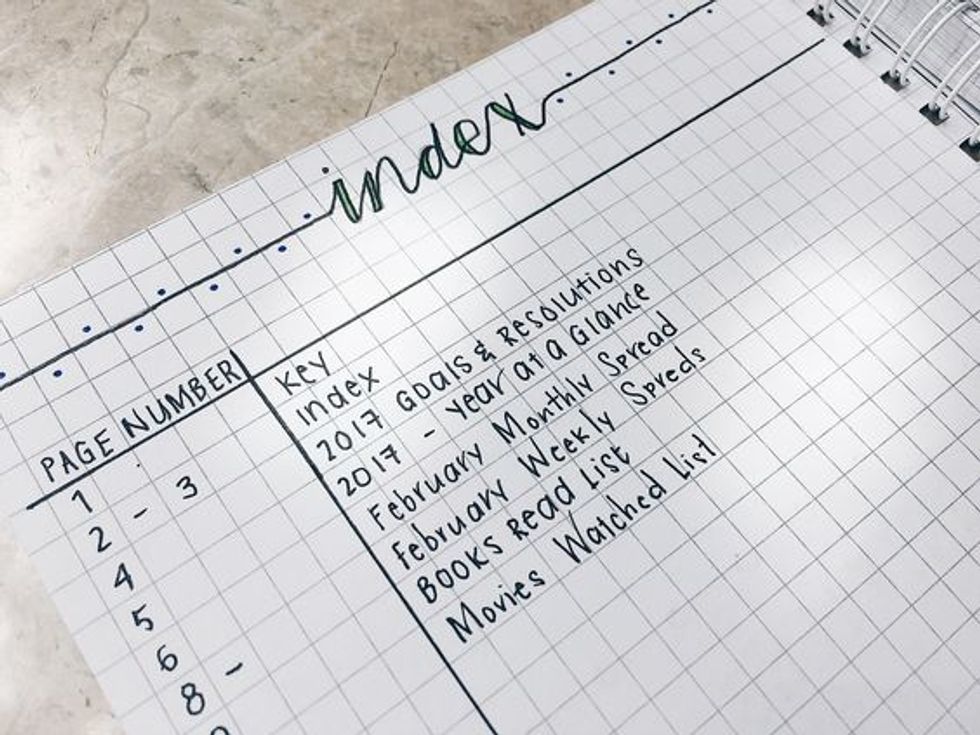 index
PAGE NUMBER
1 Key
2 - 3 Index
4 2017 Goals & Resolutions
5 2017 - Year at a Glance
6 February Monthly Spread
8 - February Weekly Spreds
Books Read List
Movies Watched List